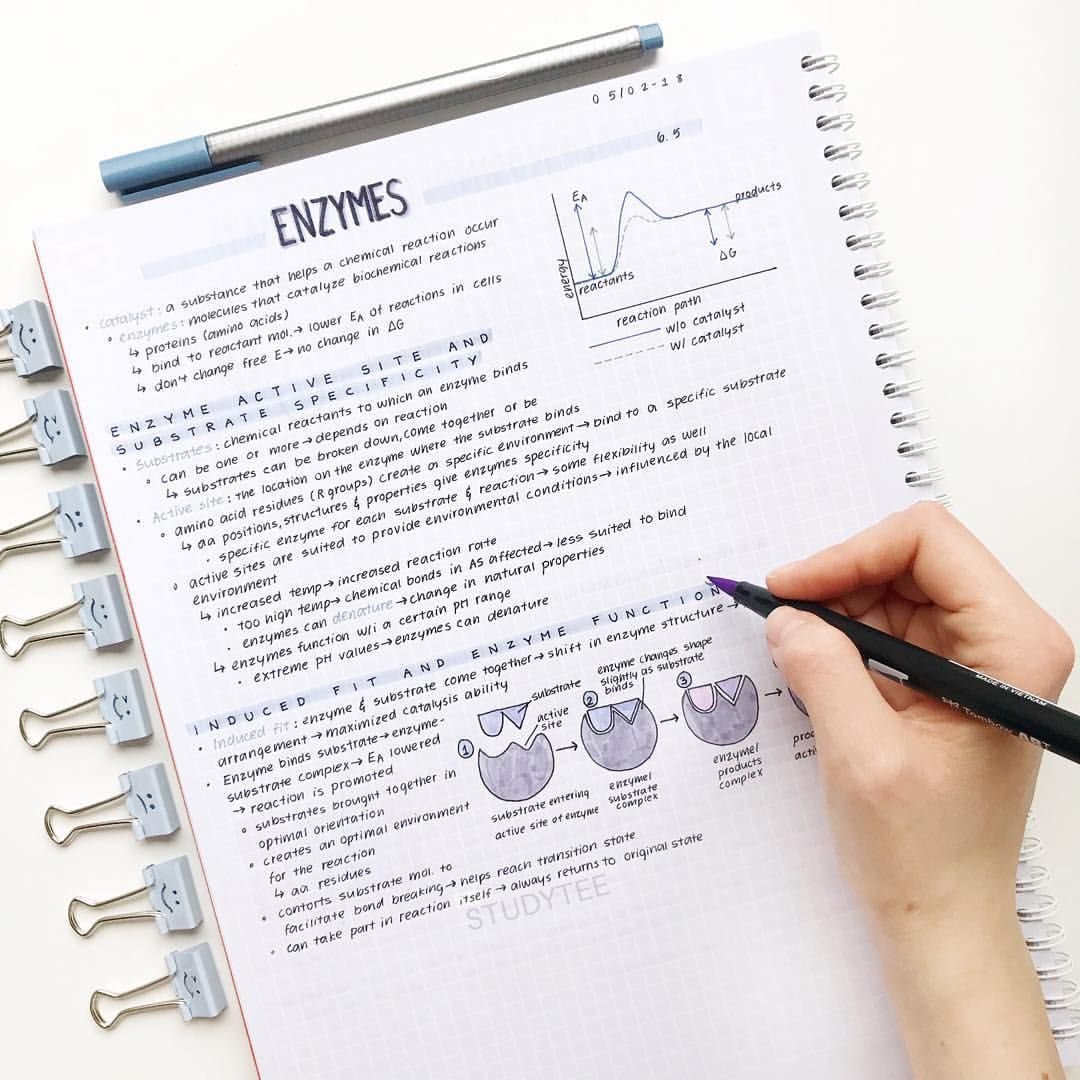 05/02-18
6.5
ENZYMES
• catalyst: a substance that helps a chemical reaction occur
∘ enzymes: molecules that catalyze biochemical reactions
↳ proteins (amino acids)
↳ bind to reactant mol.→ lower EA of reactions in cells
↳ don't change free E→ no change in ΔG
EA
products
energy
reactants
ΔG
reaction path
w/o catalyst
w/ catalyst
ENZYME ACTIVE SITE AND
SUBSTRATE SPECIFICITY
• Substrates: chemical reactants to which an enzyme binds
∘ can be one or more→ depends on reaction
↳ substrates can be broken down, come together or be
• Active site: the location on the enzyme where the substrate binds
∘ amino acid residues (R groups) create a specific environment→ bind to a specific substrate
↳ aa positions, structures & properties give enzymes specificity
• specific enzyme for each substrate & reaction→ some flexibility as well
∘ active sites are suited to provide environmental conditions→ influenced by the local
environment
↳ increased temp→ increased reaction rate
• too high temp→ chemical bonds in AS affected→ less suited to bind
• enzymes can denature→ change in natural properties
↳ enzymes function w/i a certain pH range
• extreme pH values→ enzymes can denature
INDUCED FIT AND ENZYME FUNCTION
• Induced fit: enzyme & substrate come together→ shift in enzyme structure→
arrangement→ maximized catalysis ability
• Enzyme binds substrate→ enzyme-
substrate complex→ EA lowered
→ reaction is promoted
∘ substrates brought together in
optimal orientation
∘ creates an optimal environment
for the reaction
↳ aa residues
∘ contorts substrate mol. to
facilitate bond breaking→ helps reach transition state
∘ can take part in reaction itself→ always returns to original state
1
substrate
active
site
substrate entering
active site of enzyme
2
enzyme changes shape
slightly as substrate
binds
enzyme/
substrate
complex
3
enzyme/
products
complex
STUDYTEE
MADE IN VIETNAM